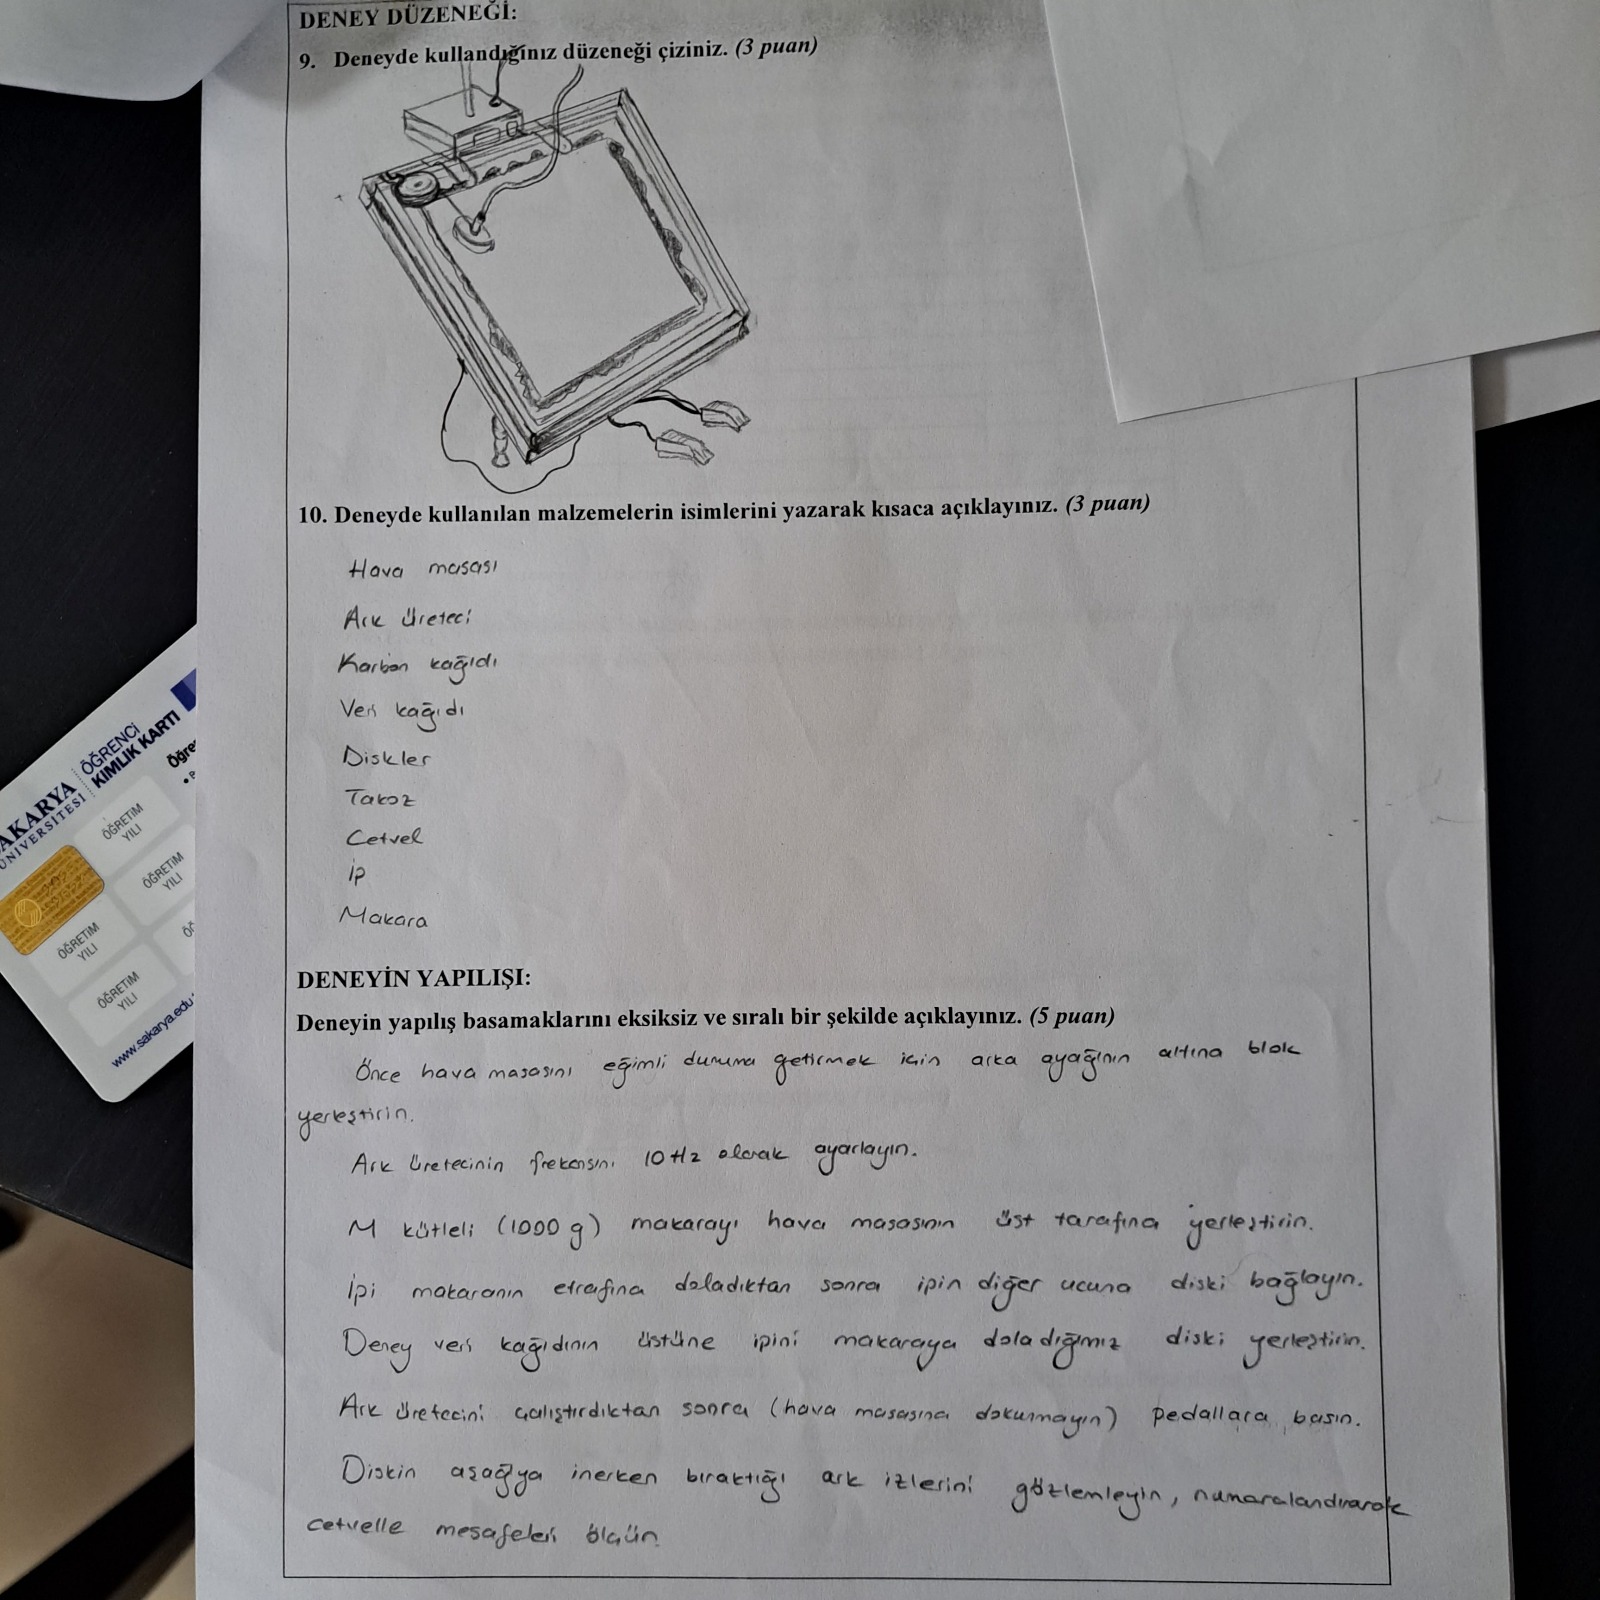 DENEY DÜZENEĞİ:
9. Deneyde kullandığınız düzeneği çiziniz. (3 puan)
10. Deneyde kullanılan malzemelerin isimlerini yazarak kısaca açıklayınız. (3 puan)
Hava masası
Ark üreteci
Karbon kağıdı
Veri kağıdı
Diskler
Takoz
Cetvel
İp
Makara
DENEYİN YAPILIŞI:
Deneyin yapılış basamaklarını eksiksiz ve sıralı bir şekilde açıklayınız. (5 puan)
Önce hava masasını eğimli duruma getirmek için arka ayağının altına blok
yerleştirin.
Ark üretecinin frekansını 10 Hz olarak ayarlayın.
M kütleli (1000 g) makarayı hava masasının üst tarafına yerleştirin.
İpi makaranın etrafına doladıktan sonra ipin diğer ucuna diski bağlayın.
Deney veri kağıdının üstüne ipini makaraya doladığımız diski yerleştirin.
Ark üretecini çalıştırdıktan sonra (hava masasına dokunmayın) pedallara basın.
Diskin aşağıya inerken bıraktığı ark izlerini gözlemleyin, numaralandırarak
cetvelle mesafeleri ölçün.
SAKARYA
ÜNİVERSİTESİ
ÖĞRENCİ
KİMLİK KARTI
ÖĞRETİM
YILI
ÖĞRETİM
YILI
ÖĞRETİM
YILI
ÖĞRETİM
YILI
www.sakarya.edu